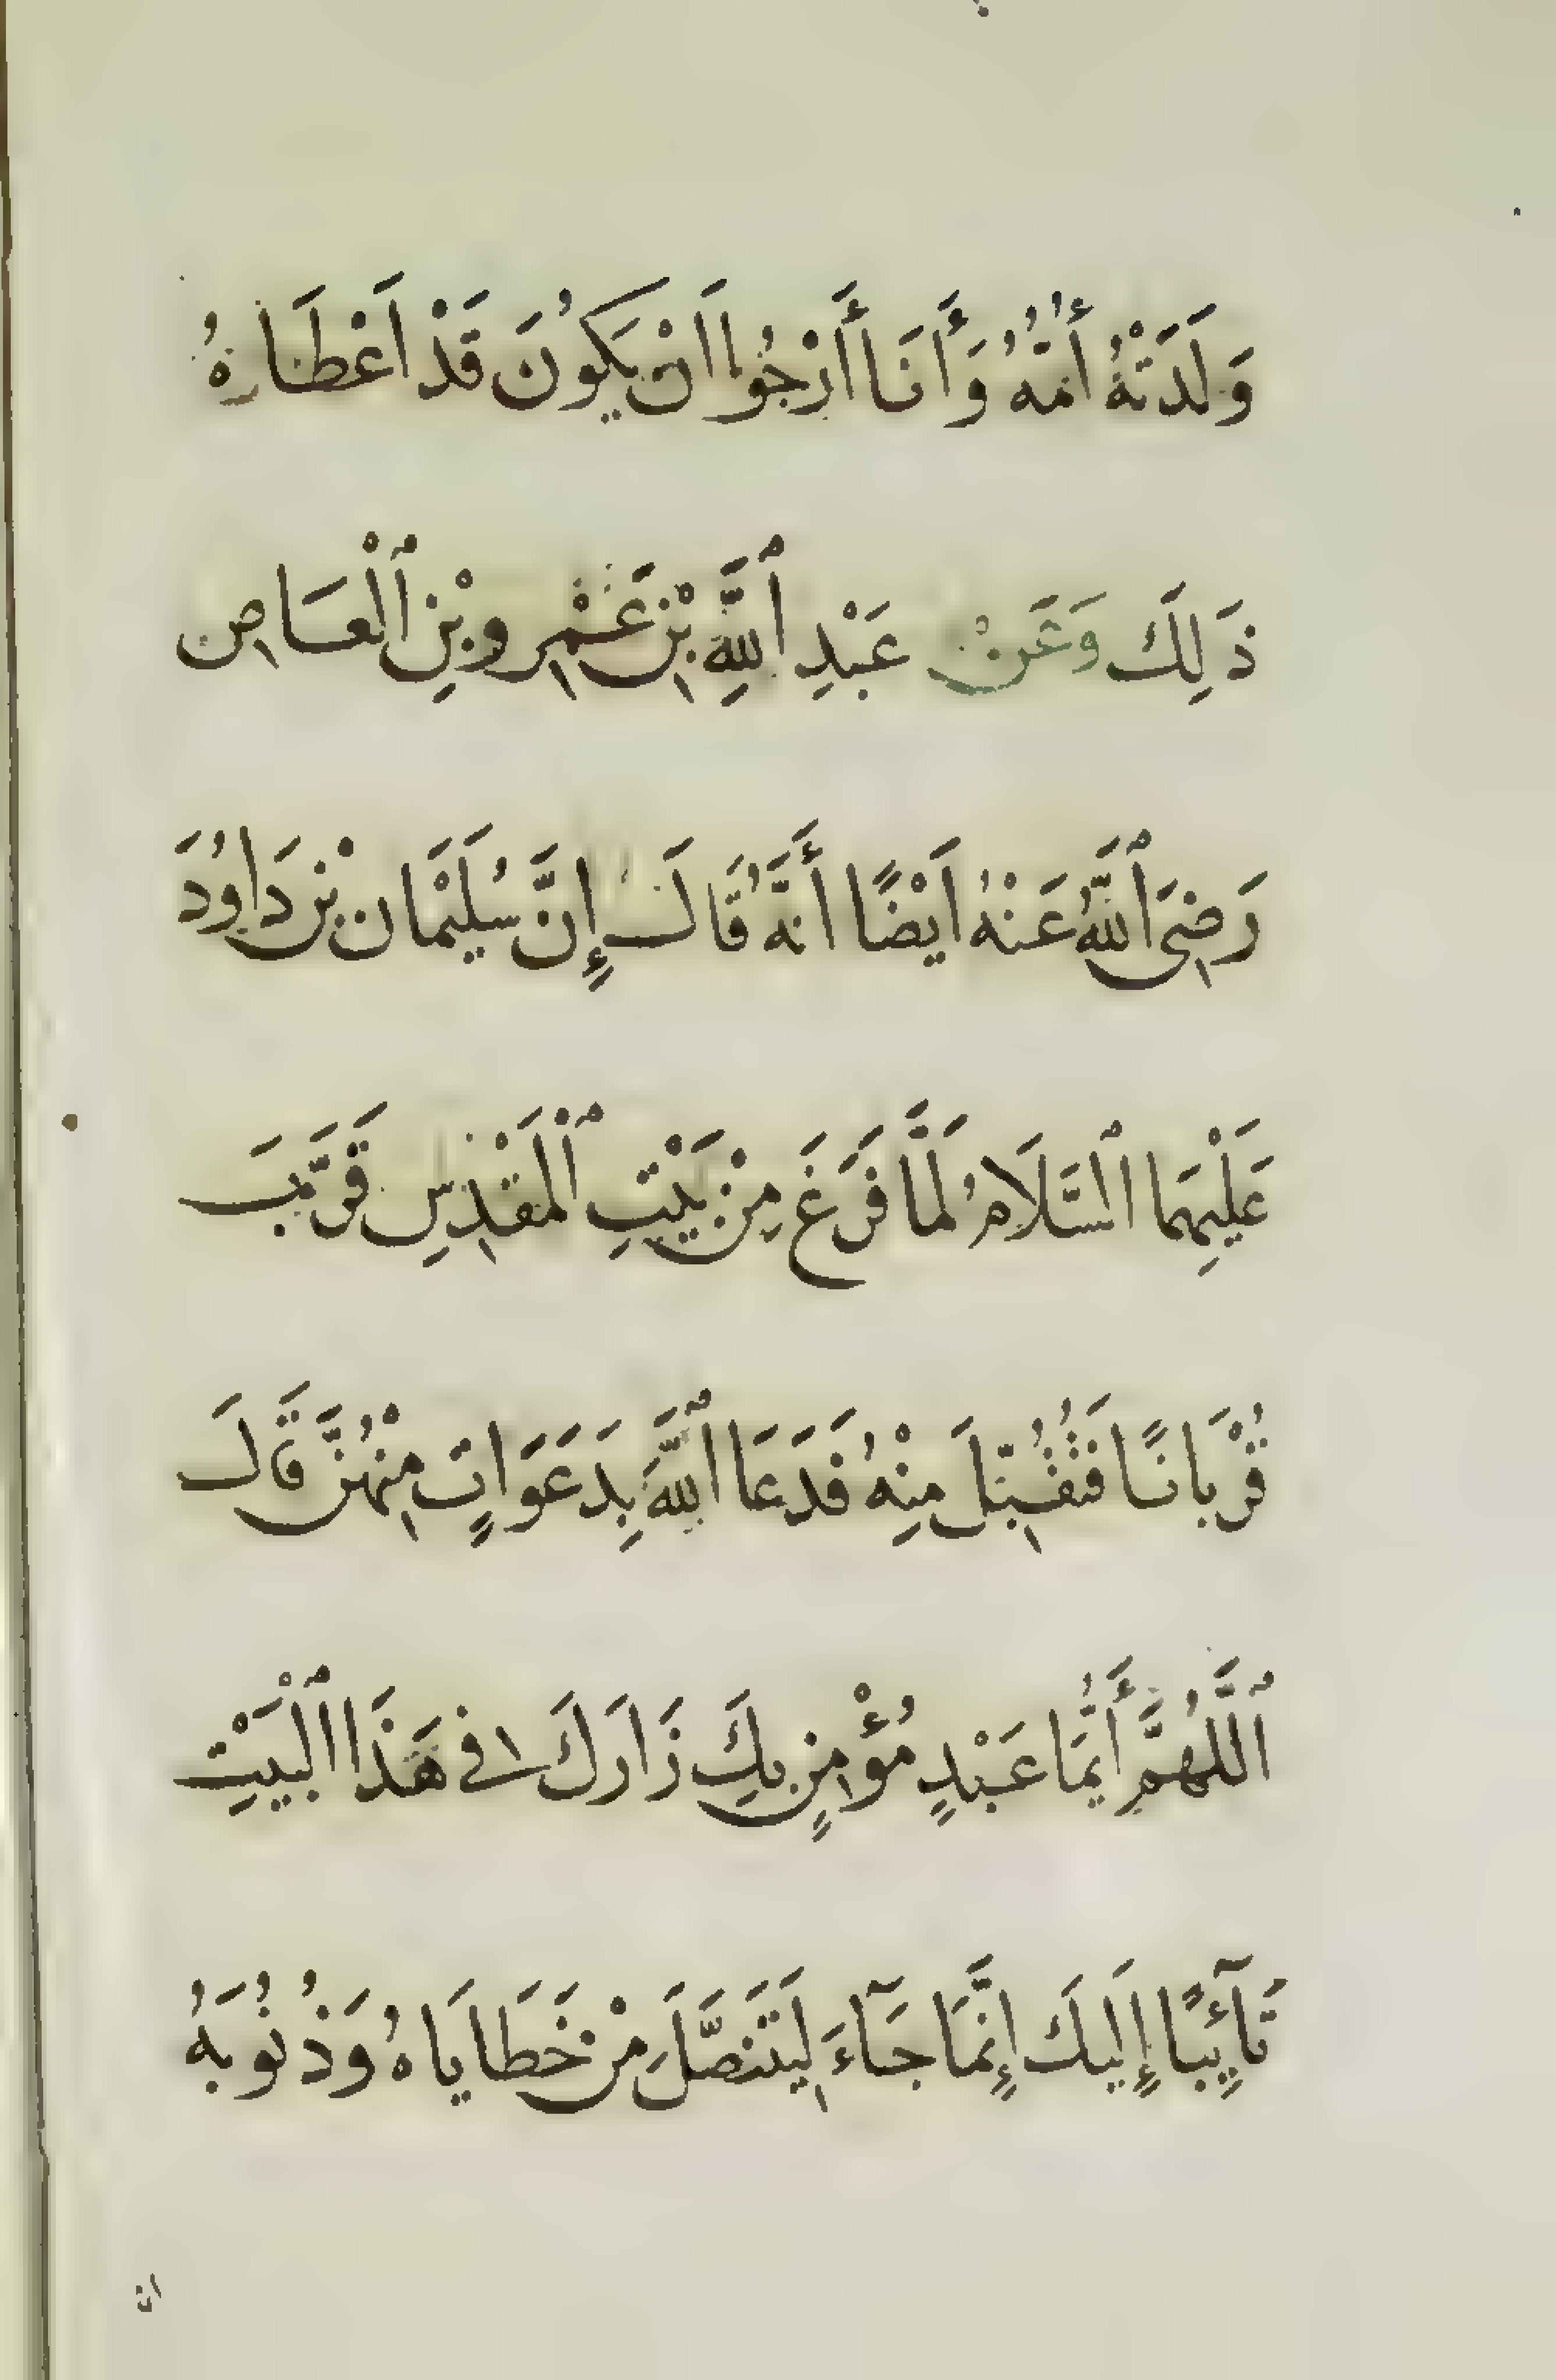 وَلَدَتْهُ أُمُّهُ وَأَنَا أَرْجُوا اَنْ يَكُونَ قَدْ اَعْطَاهُ
ذَلِكَ وَعَنْ عَبْدِ ٱللَّهِ بْنِ عَمْرٍو بْنِ ٱلْعَاصِ
رَضِيَ ٱللَّهُ عَنْهُ اَيْضًا أَنَّهُ قَالَ إِنَّ سُلَيْمَان بْنَ دَاوُدَ
عَلَيْهِمَا ٱلسَّلَامُ لَمَّا فَرَغَ مِنْ بَيْتِ ٱلْمَقْدِسِ قَرَّبَ
قُرْبَانًا فَتُقُبِّلَ مِنْهُ فَدَعَا ٱللَّهَ بِدَعَوَاتٍ مِنْهُنَّ قَالَ
ٱللَّهُمَّ أَيُّمَا عَبْدٍ مُؤْمِنٍ بِكَ زَارَكَ فِي هَذَا ٱلْبَيْتِ
تَآئِبًا إِلَيكَ إِنَّمَا جَآءَ لِيَتَنَصَّلَ مِنْ خَطَايَاهُ وَذُنُوبَهُ